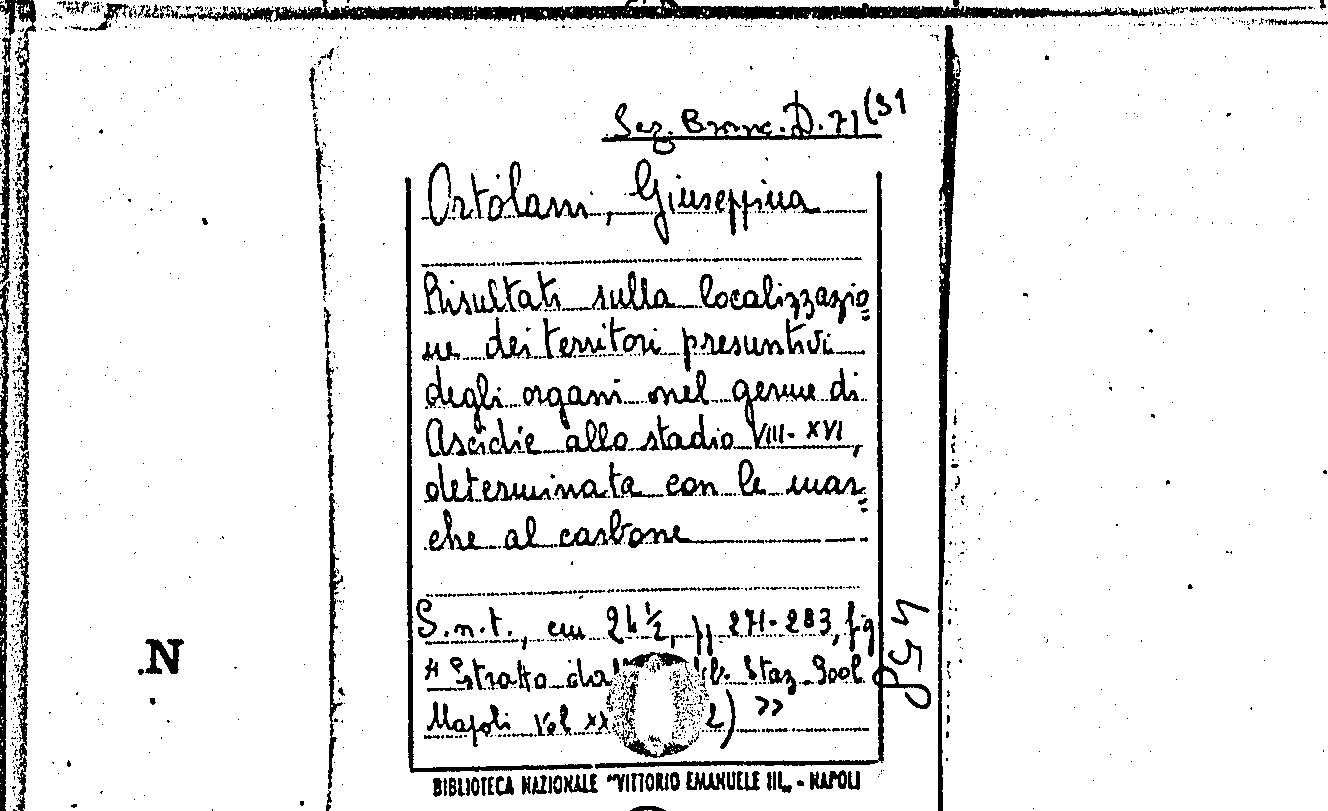 Sez. Branc. D. 71(31
Ortolani, Giuseppina
Risultati sulla localizzazio=
ne dei territori presuntivi
degli organi nel germe di
Ascidie allo stadio VIII-XVI,
determinata con le mar=
che al carbone
S.n.t., cm 24 1/2, pp 271-283, fig
Estratto Staz. Zool
Napoli Vol 2) >>
458
.N
BIBLIOTECA NAZIONALE "VITTORIO EMANUELE III„ - NAPOLI